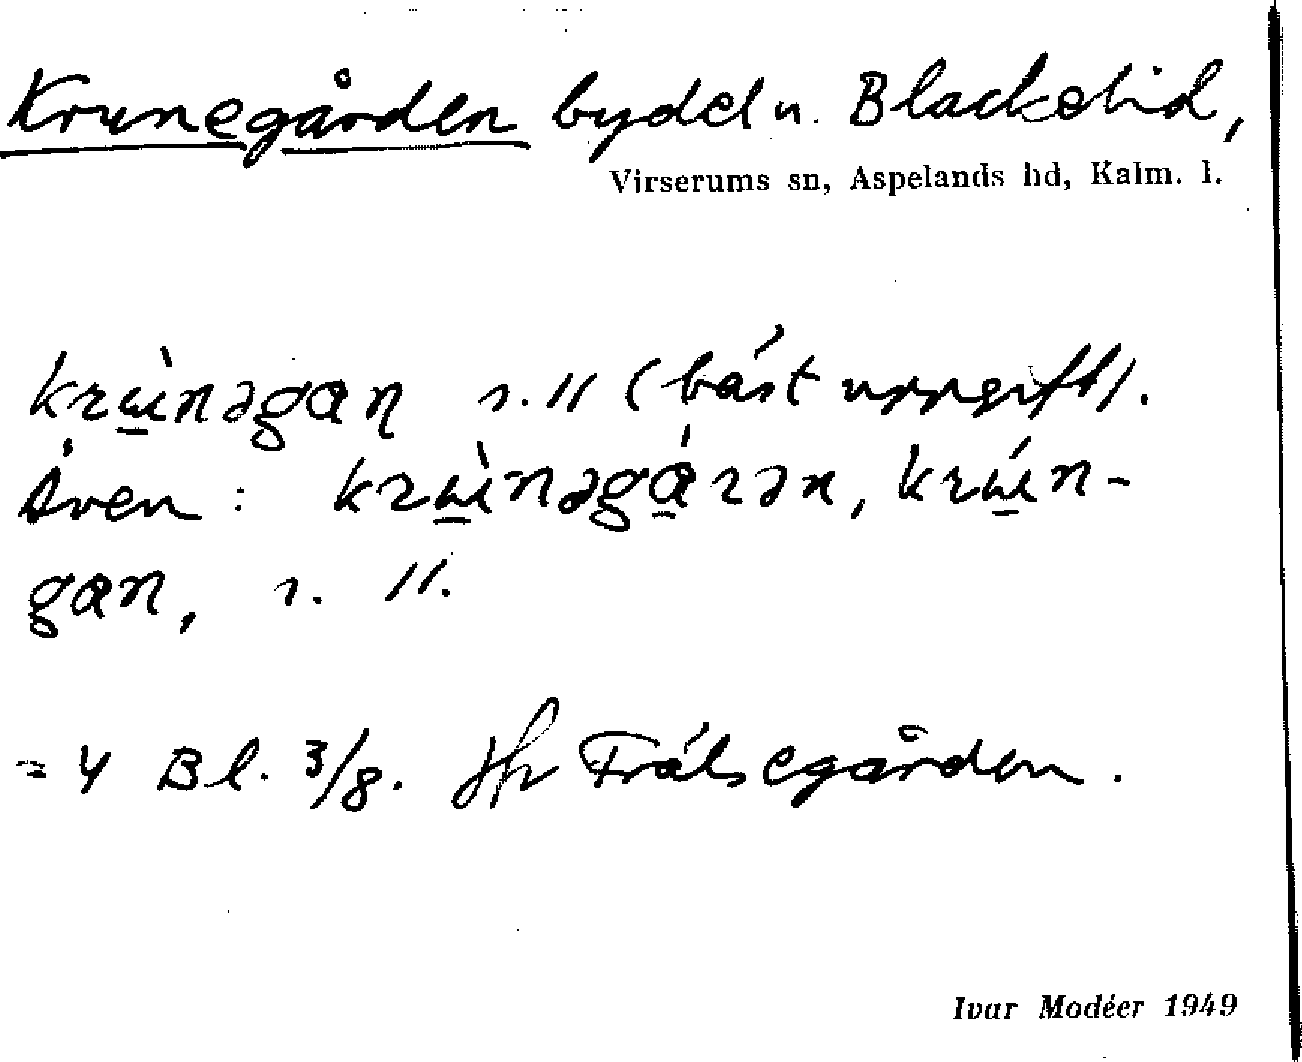 Krunegården bydel u. Blackelid,
Virserums sn, Aspelands hd, Kalm. l.
krɯ̀nəgaɳ r. 11 (bäst uppgift).
Även: krɯ̀nəgárən, krɯ́n-
gan, r. 11.
= 4 Bl. 3/8. Jfr Frälsegården.
Ivar Modéer 1949